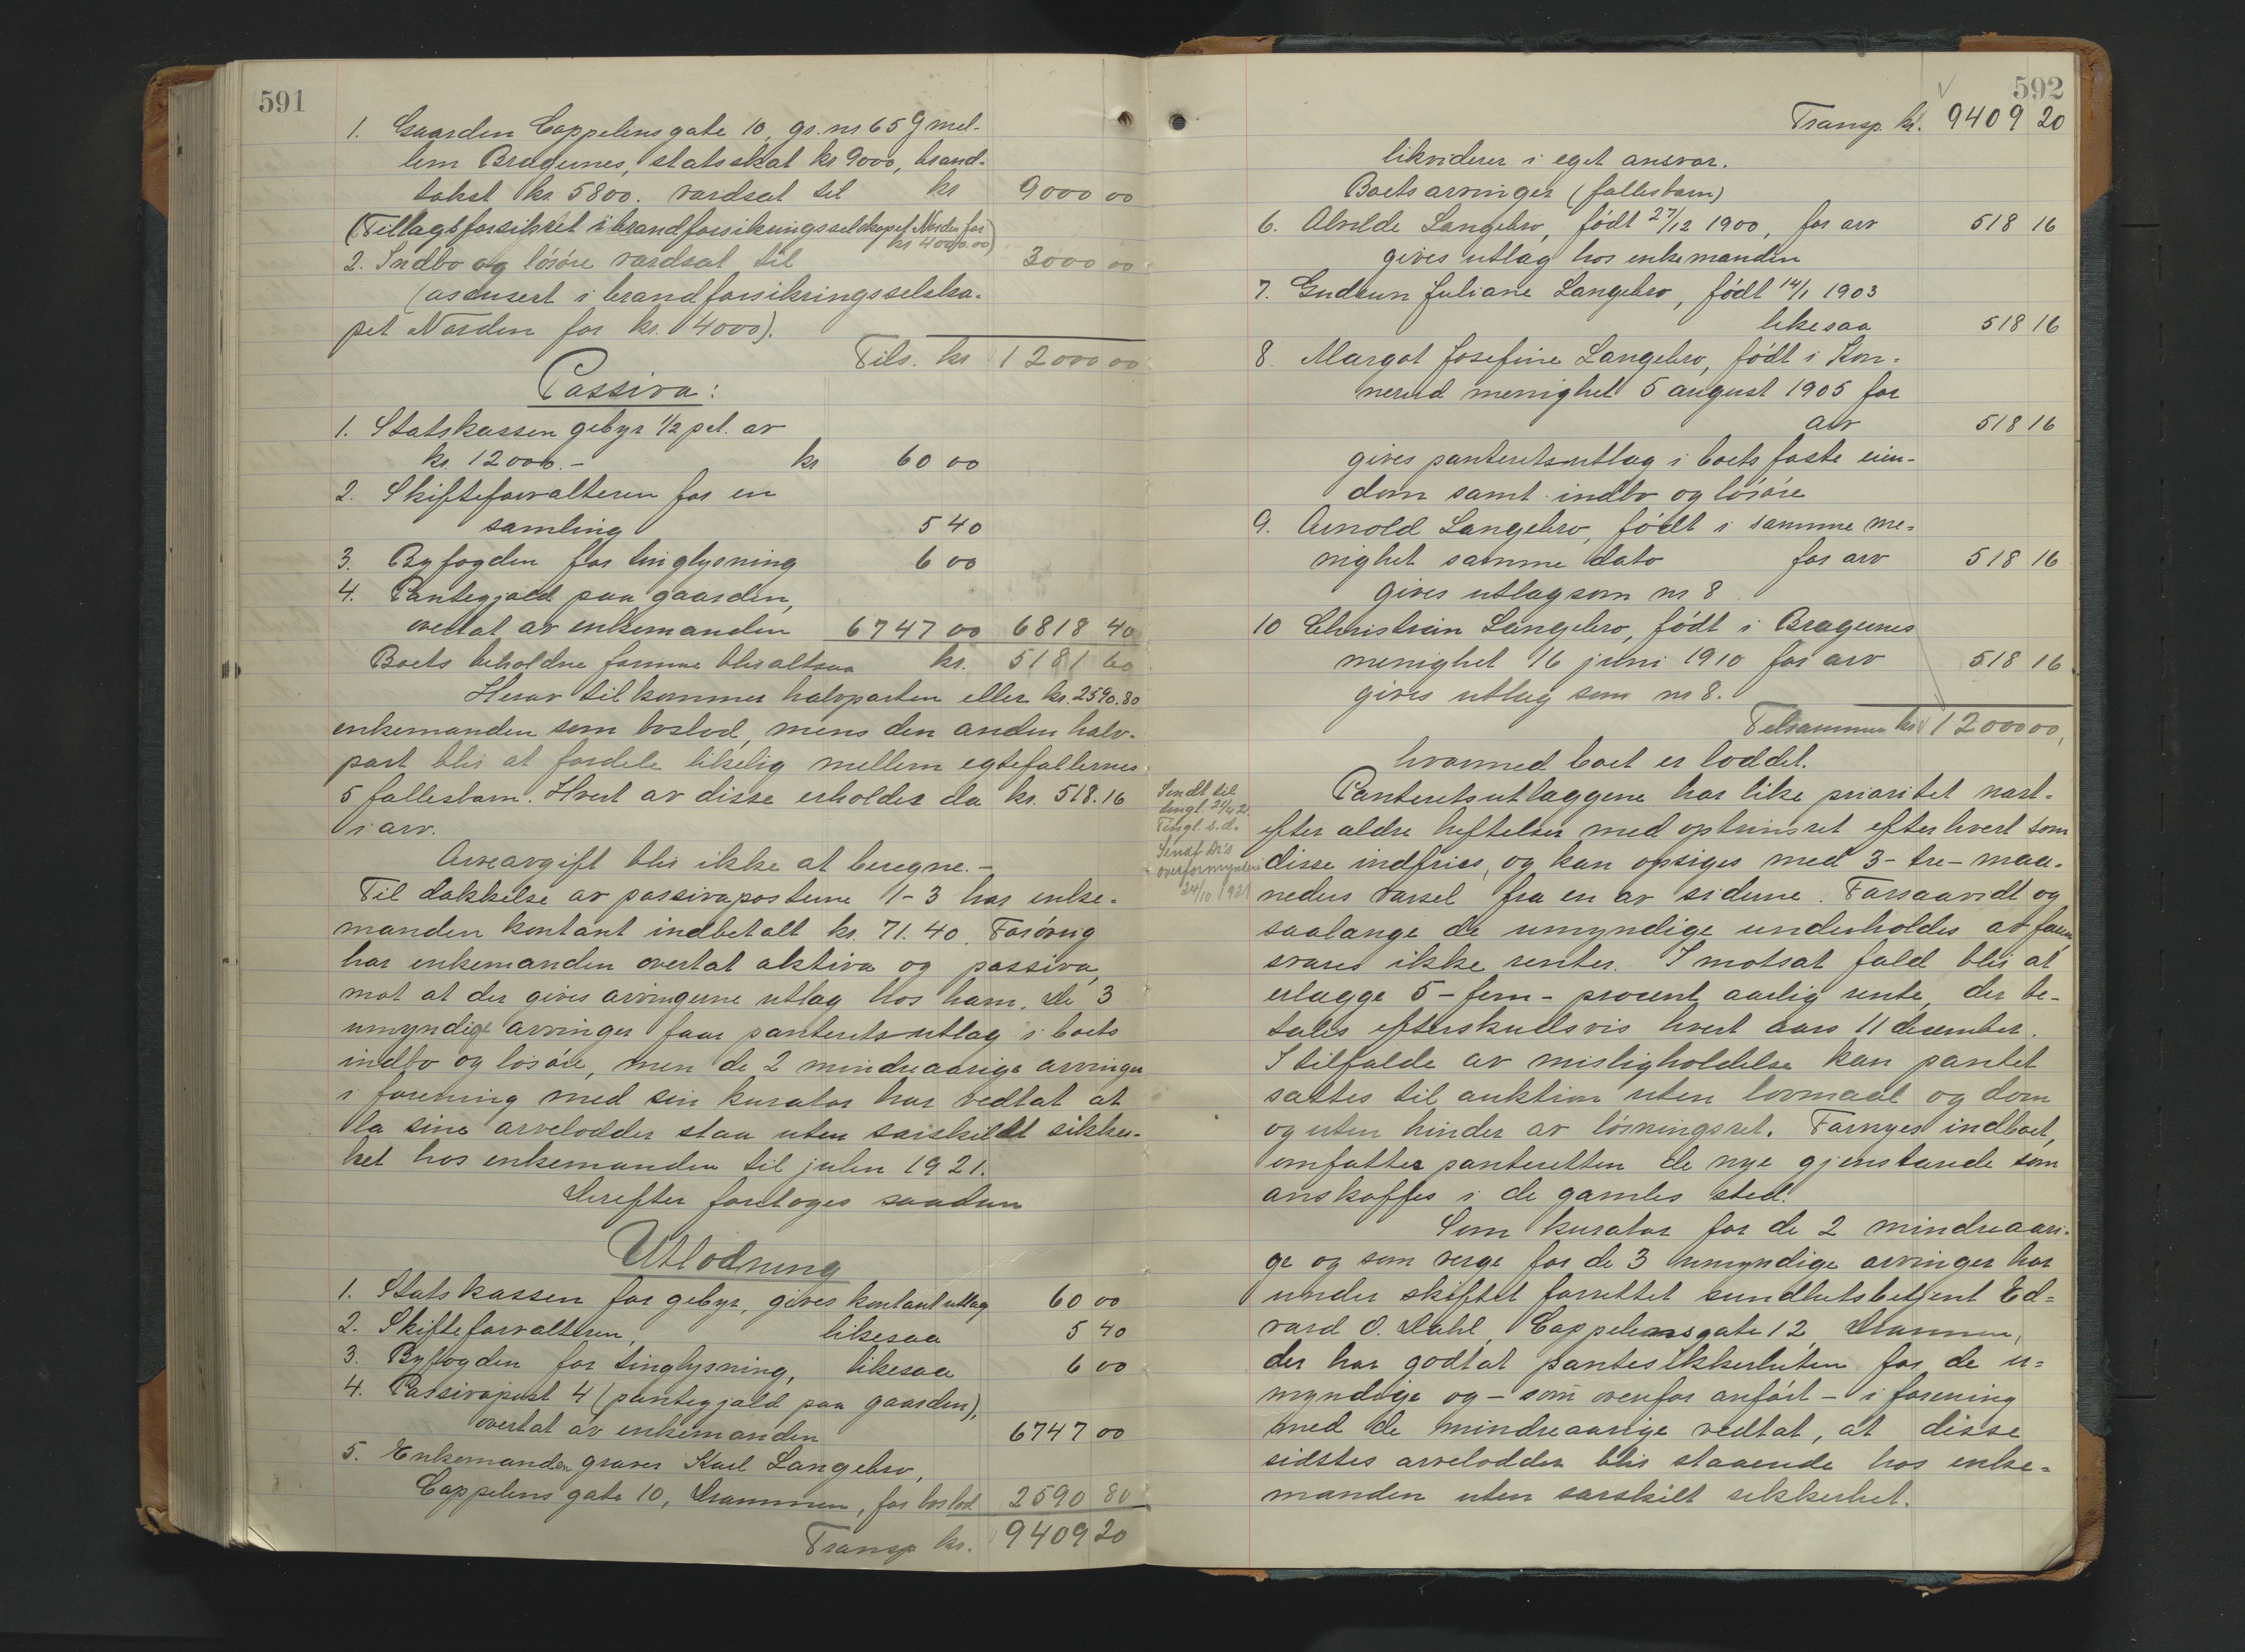 591
1. Gaarden Cappelensgate 10, gr. nr 659 mel-
lem Bragernes, statsskat kr 9000, brand-
takst kr. 5800. værdsat til kr 9000 00
(Tillægsforsikret i brandforsikringsselskapet Norden for
kr 4000.00)
2. Indbo og løsøre værdsat til 3000 00
(assurert i brandforsikringsselska-
pet Norden for kr. 4000).
Tils. kr 12000 00
Passiva:
1. Statskassen gebyr 1/2 pct. av
kr. 12000.- kr 60 00
2. Skifteforvalteren for en
samling 5 40
3. Byfogden for tinglysning 6 00
4. Pantegjæld paa gaarden,
overtat av enkemanden 6747 00 6818 40
Boets beholdne formue blir altsaa kr. 5181 60
Herav tilkommer halvparten eller kr. 2590.80
enkemanden som boslod, mens den anden halv-
part blir at fordele likelig mellem egtefællernes
5 fællesbarn. Hvert av disse erholder da kr. 518.16
i arv.
Arveavgift blir ikke at beregne.-
Til dækkelse av passivaposterne 1-3 har enke-
manden kontant indbetalt kr. 71.40. Forøvrig
har enkemanden overtat aktiva og passiva,
mot at der gives arvingerne utlæg hos ham. De 3
umyndige arvinger faar panteretsutlæg i boets
indbo og løsøre, men de 2 mindreaarige arvinger
i forening med sin kurator har vedtat at
la sine arvelodder staa uten særskildt sikker-
het hos enkemanden til julen 1921.
Derefter foretoges saadan
Utlodning
1. Statskassen for gebyr, gives kontant utlæg 60 00
2. Skifteforvalteren, likesaa 5 40
3. Byfogden for tinglysning, likesaa 6 00
4. Passivapost 4 (pantegjæld paa gaarden),
overtat av enkemanden 6747 00
5. Enkemanden graver Karl Langebro,
Cappelens gate 10, Drammen, for boslod 2590 80
Transp kr. 9409 20
592
Transp. kr. 9409 20
likviderer i eget ansvar.
Boets arvinger (fællesbarn)
6. Alvilde Langebro, født 27/12 1900, for arv 518 16
gives utlæg hos enkemanden
7. Gudrun Juliane Langebro, født 14/1 1903
likesaa 518 16
8 Margot Josefine Langebro, født i Kon-
nerud menighet 5 august 1905 for
arv 518 16
gives panteretsutlæg i boets faste eien-
dom samt indbo og løsøre
9. Arnold Langebro, født i samme me-
nighet samme dato for arv 518 16
gives utlæg som nr 8
10 Christian Langebro, født i Bragernes
menighet 16 juni 1910 for arv 518 16
gives utlæg som nr 8.
Tilsammen kr 12000 00,
hvormed boet er loddet.
Panteretsutlæggene har like prioritet næst-
efter ældre heftelser med optrinsret efterhvert som
disse indfries, og kan opsiges med 3- tre- maa-
neders varsel fra en av siderne. Forsaavidt og
saalænge de umyndige underholdes av faren,
svares ikke renter. I motsat fald blir at
erlægge 5- fem- procent aarlig rente, der be-
tales efterskudsvis hvert aars 11 december.
I tilfælde av misligholdelse kan pantet
sættes til auktion uten lovmaal og dom
og uten hinder av løsningsret. Fornyes indboet,
omfatter panteretten de nye gjenstande som
anskaffes i de gamles sted.
Som kurator for de 2 mindreaari-
ge og som verge for de 3 umyndige arvinger har
under skiftet forrettet sundhetsbetjent Ed-
vard O. Dahl, Cappelensgate 12, Drammen,
der har godtat pantesikkerheten for de u-
myndige og - som ovenfor anført - i forening
med de mindreaarige vedtat, at disse
sidstes arvelodder blir staaende hos enke-
manden uten særskilt sikkerhet.
Sendt til
tingl. 21/4 21.
Tingl. s.d.
overformynderi
24/10 1921